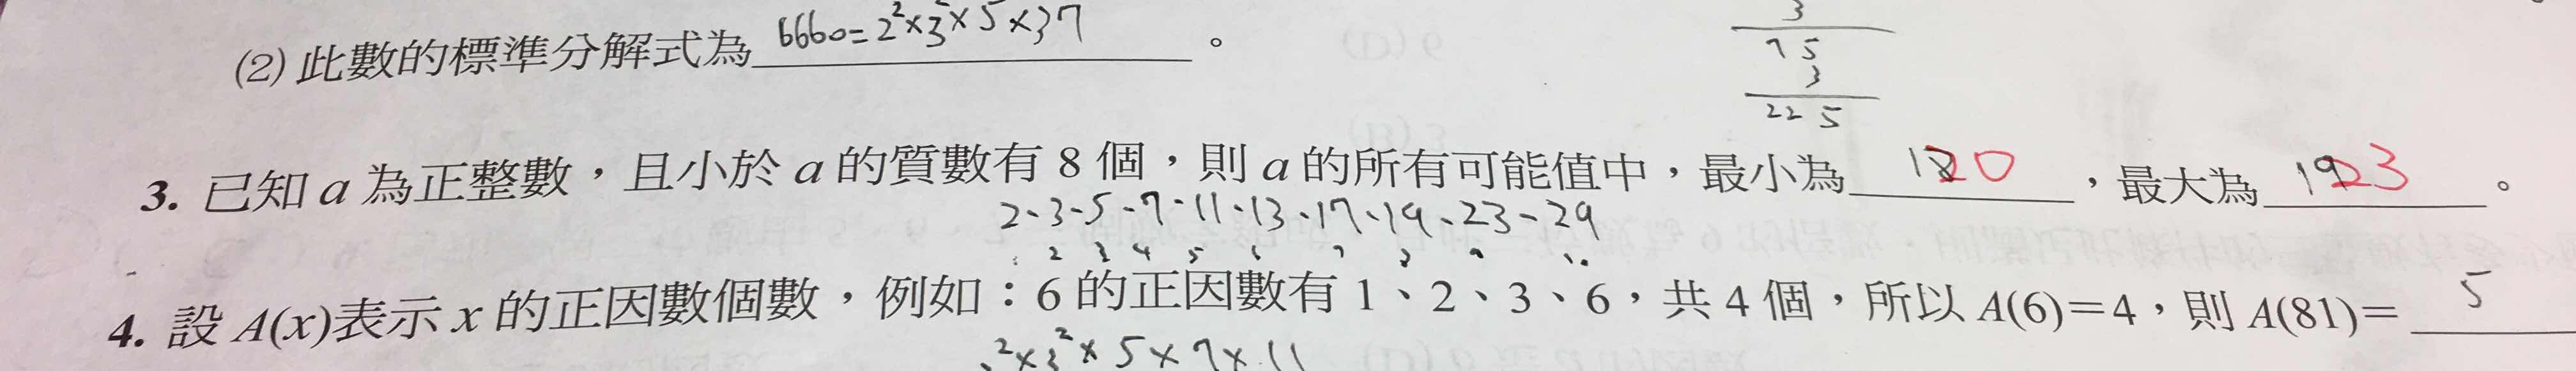 3
(2) 此數的標準分解式為 6660=2²×3²×5×37 。
75
3
225
3. 已知 a 為正整數，且小於 a 的質數有 8 個，則 a 的所有可能值中，最小為 20 ，最大為 23 。
2、3、5、7、11、13、17、19、23、29
2 3 4 5 6 7 8 9 10
4. 設 A(x)表示 x 的正因數個數，例如：6 的正因數有 1、2、3、6，共 4 個，所以 A(6)=4，則 A(81)= 5
²×3²×5×7×11